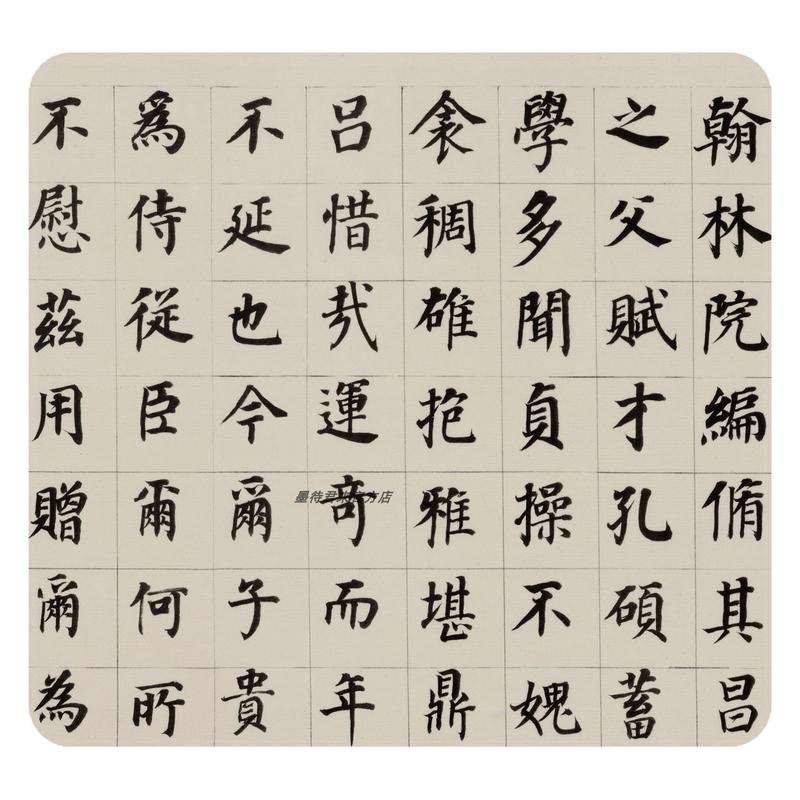 翰林院編脩其昌
之父賦才孔碩蓄
學多聞貞操不媿
衾稠雄抱雅堪鼎
呂惜哉運奇而年
不延也今爾子貴
爲侍從臣爾何所
不慰茲用贈爾為
墨待君 方店